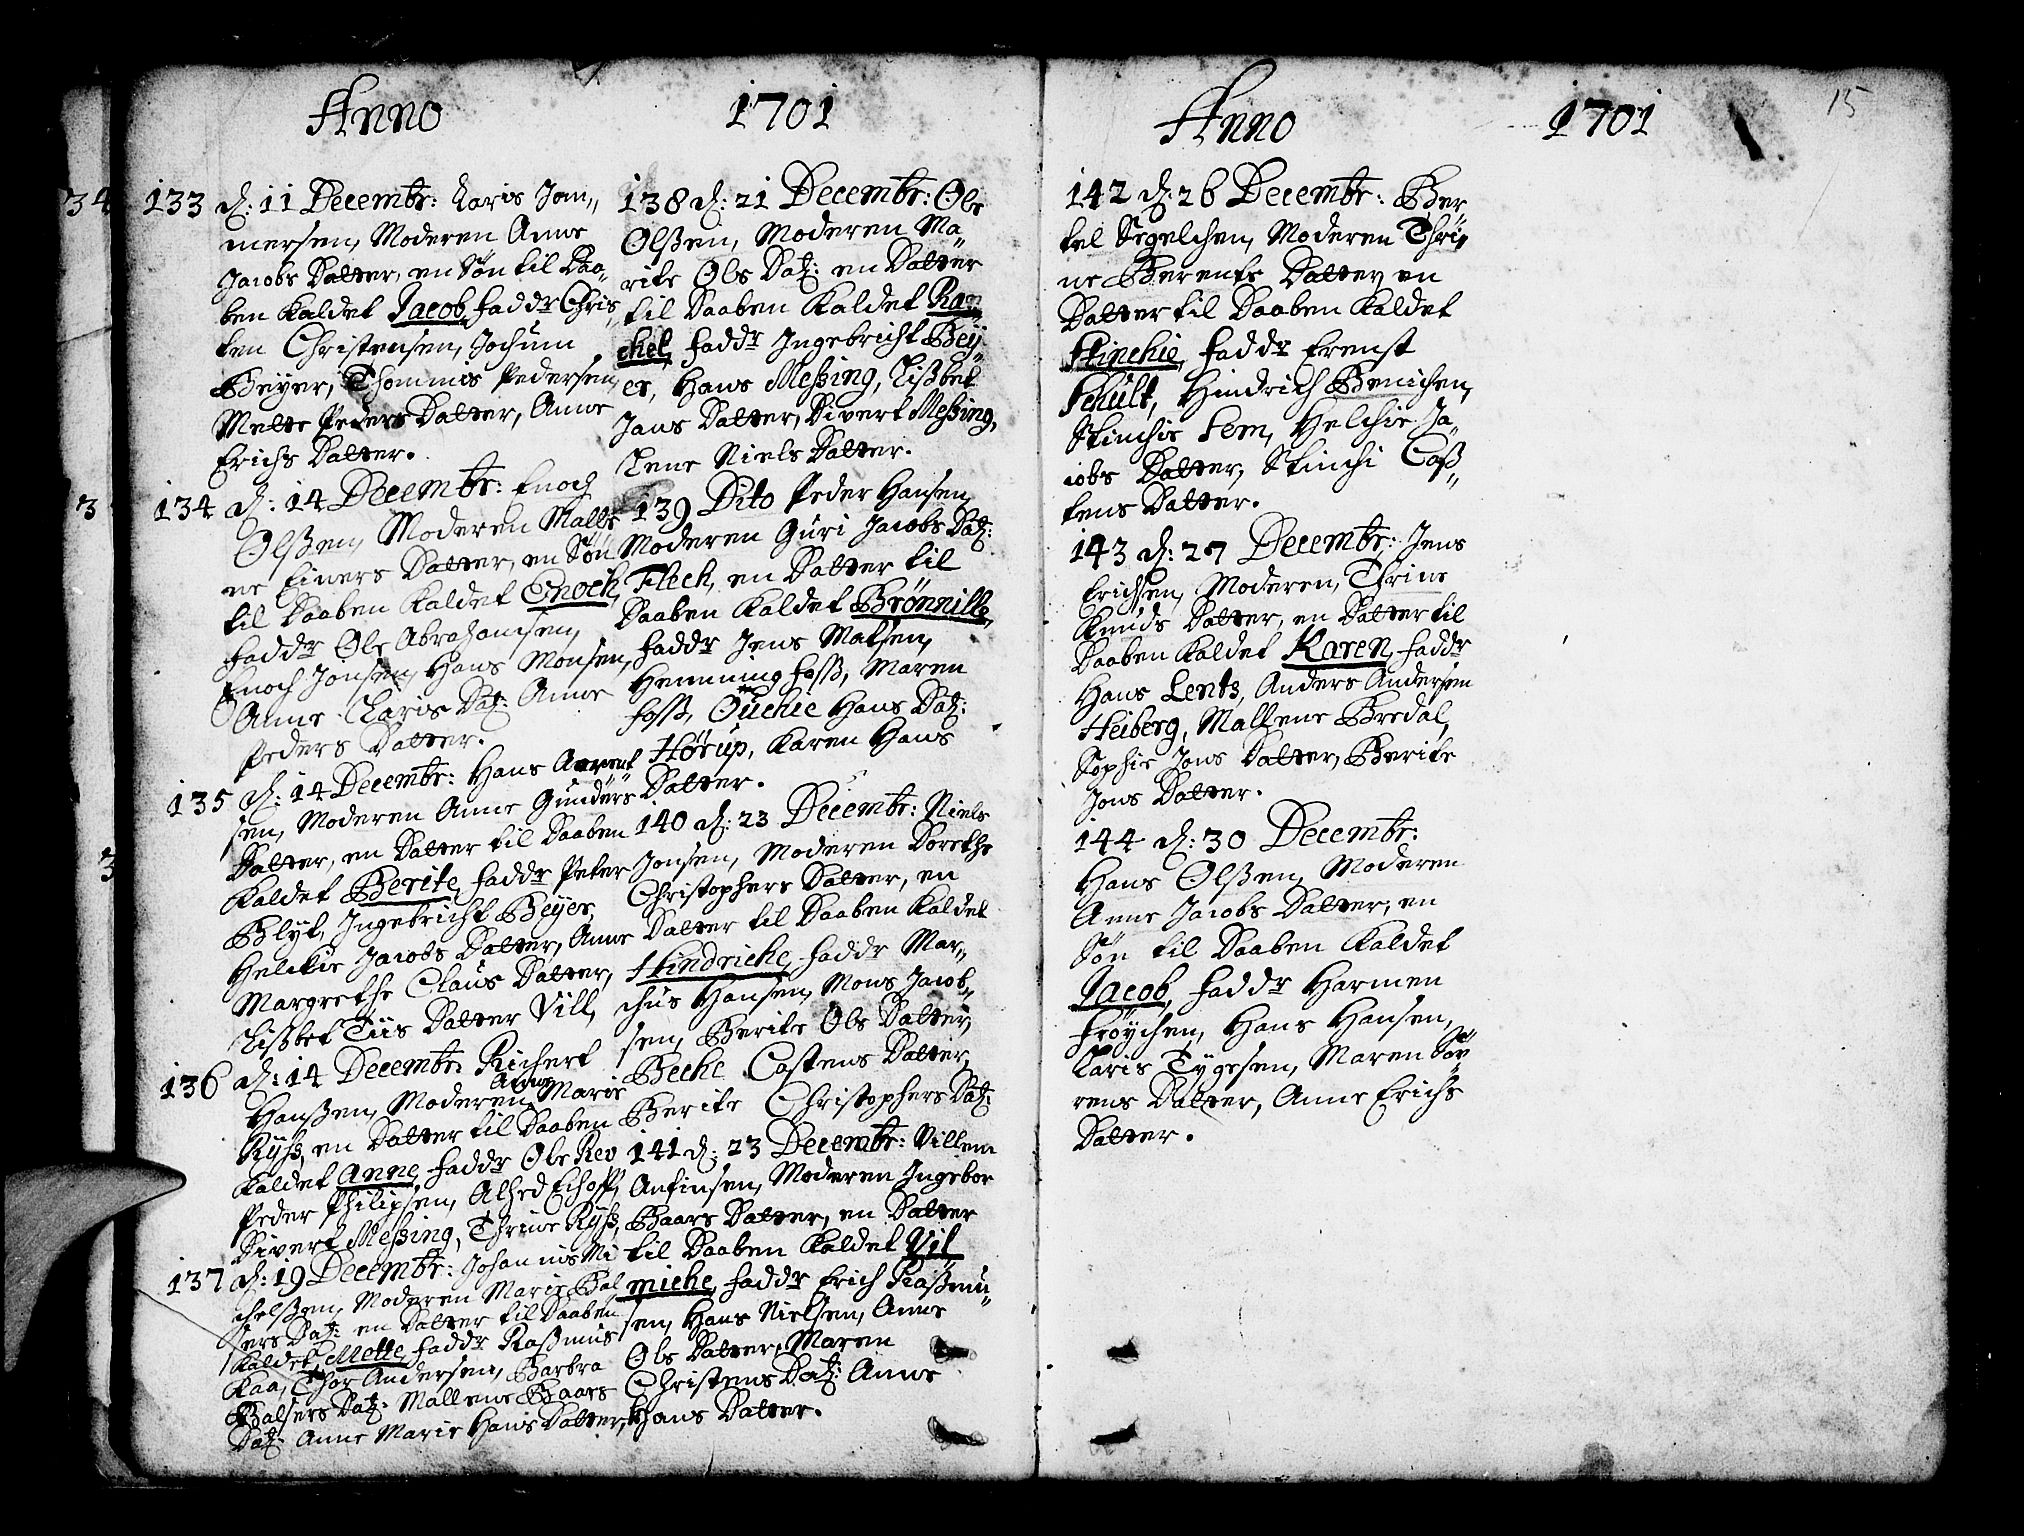 Anno 1701
133 d: 11 Decembr: Laris Jom„
mersen, Moderen Anne
Jacobs Datter, en Søn til Daa„
ben kaldet Jacob, faddr Chris„
ten Christensen, Jochum
Beyer, Thommis Pedersen,
Mette Peders Datter, Anne
Erichs Datter.
134 d: 14 Decembr: Enoch
Olßen, Moderen Malle„
ne Einers Datter, en Søn
til Daaben kaldet Enoch,
faddr Ole Abrahamsen,
Enoch Jonsen, Hans Monsen,
Anne Laris Datt: Anne
Peders Datter.
135 d: 14 Decembr: Hans Arent
sen, Moderen Anne Gunders
Datter, en Datter til Daaben
kaldet Berite, faddr Peter
Blyt, Ingebricht Beyer,
Helckie Jacobs Datter, Anne
Margrethe Claus Datter,
Lißbet Tiis Datter Vill,
136 d: 14 Decembr: Richert
Hanßen, Moderen Anne Marie
Ryß, en Datter til Daaben
kaldet Anne, faddr Ole Rev
Peder Philipsen, Alhed Eichoff,
Divert Meßing, Thrine Ryß,
137 d: 19 Decembr: Johannis Mi
chelßen, Moderen Marie Bal
sers Datt: en Datter til Daaben
kaldet Mette, faddr Raßmus
Kaa, Thor Andersen, Barbra
Balsers Datt: Mallene Baars
Datt: Anne Marie Hans Datter,
138 d: 21 Decembr: Ole
Olßen, Moderen Ma„
rite Ols Datt: en Datter
til Daaben kaldet Ra„
chel, faddr Ingebricht Bey„
er, Hans Meßing, Lißbet
Jans Datter, Divert Meßing,
Lene Niels Datter.
139 Dito Peder Hansen,
Moderen Guri Jacobs Datt:
Fleck, en Datter til
Daaben kaldet Brønnille,
faddr Jens Matsen,
Henning foss, Maren
foss, Ouchie Hans Datt:
Hørup, Karen Hans
Datter.
140 d: 23 Decembr: Niels
Jonsen, Moderen Dorethe
Christophers Datter, en
Datter til Daaben kaldet
Hindriche, faddr Mar„
chus Hansen, Mons Jacob„
sen, Berite Ols Datter,
Beche Costens Datter,
Berite Christophers Datt:
141 d: 23 Decembr: Villem
Anfinsen, Moderen Ingebor
Baars Datter, en Datter
til Daaben kaldet Vil
miche, faddr Erich Raßmu„
sen, Hans Nielsen, Anne
Ols Datter, Maren
Christens Datt: Anne
Hans Datter.
Anno 1701
15
142 d: 26 Decembr: Ber
tel Segelchen, Moderen Thri„
ne Berents Datter, en
Datter til Daaben kaldet
Stinchie, faddr Ernst
Schult, Hindrich Benichen,
Stinchie Fem, Helchie Ja„
cobs Datter, Stinchi Coß„
tens Datter.
143 d: 27 Decembr: Jens
Erichsen, Moderen, Thrine
Knuds Datter, en Datter til
Daaben kaldet Karen, faddr
Hans Lents, Anders Andersen
Heiberg, Mallene Bredal,
Sophie Jons Datter, Berite
Jons Datter.
144 d: 30 Decembr:
Hans Olßen, Moderen
Anne Jacobs Datter, en
Søn til Daaben kaldet
Jacob, faddr Harmen
Frøychen, Hans Hansen,
Laris Tygesen, Maren Søf
rens Datter, Anne Erichs
Datter.